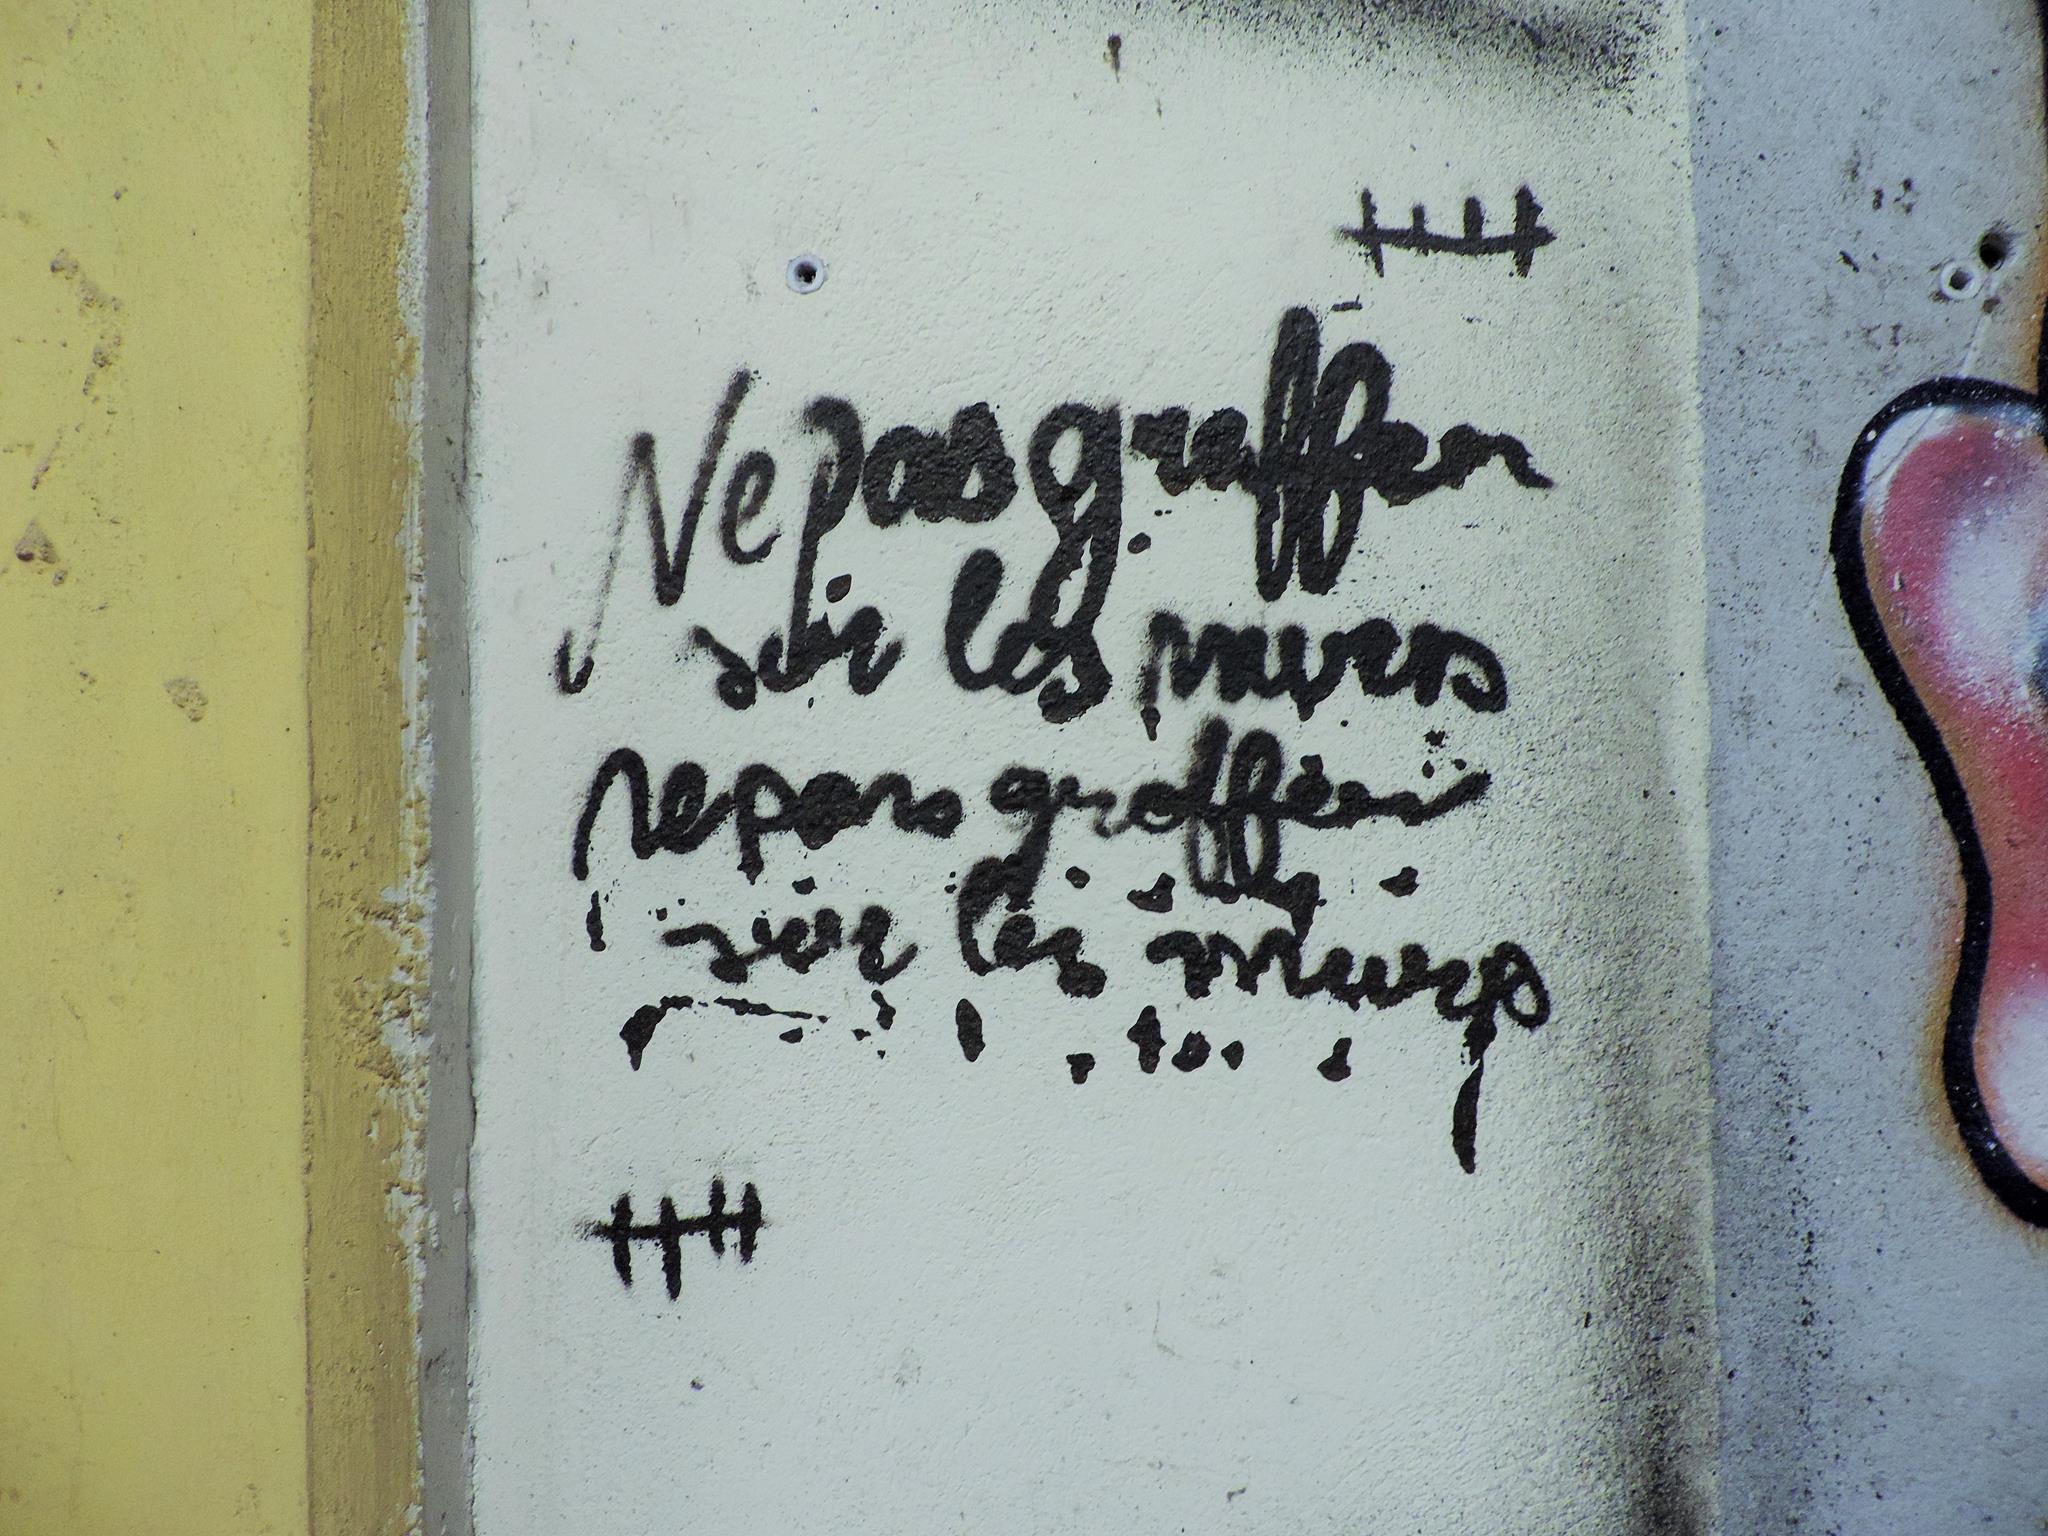 Ne pas graffer
sur les murs
ne pas graffer
sur les murs